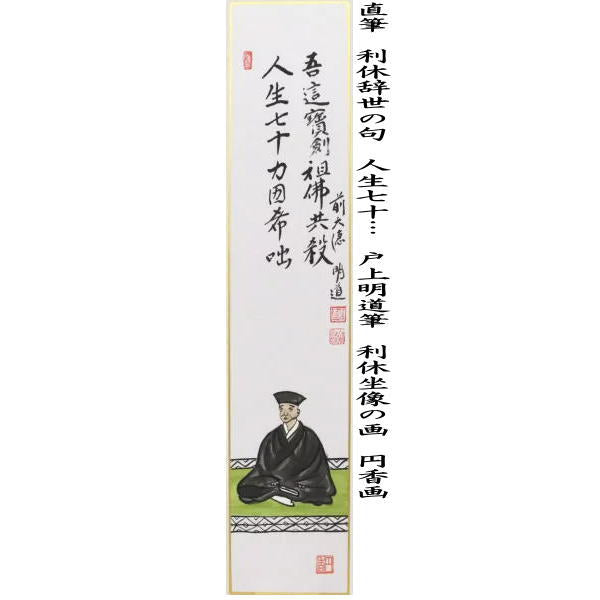 直筆 利休辞世の句 人生七十… 戸上明道筆 利休坐像の画 円香画
人生七十力囲希咄
吾這寳剣祖佛共殺
前大徳 明道